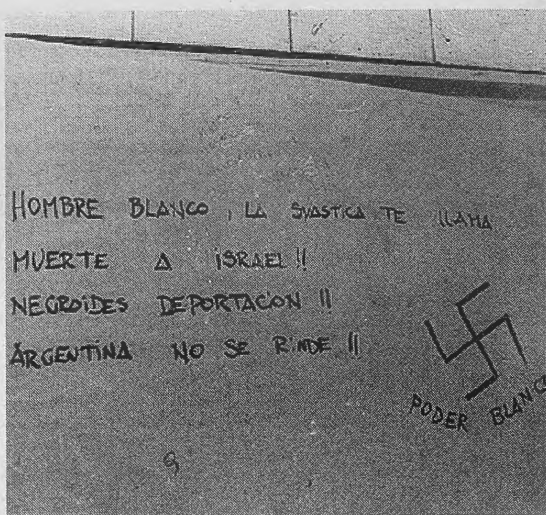 HOMBRE BLANCO, LA SVASTICA TE LLAMA
MUERTE A ISRAEL!!
NEGROIDES DEPORTACION!!
ARGENTINA NO SE RINDE!!
PODER BLANCO